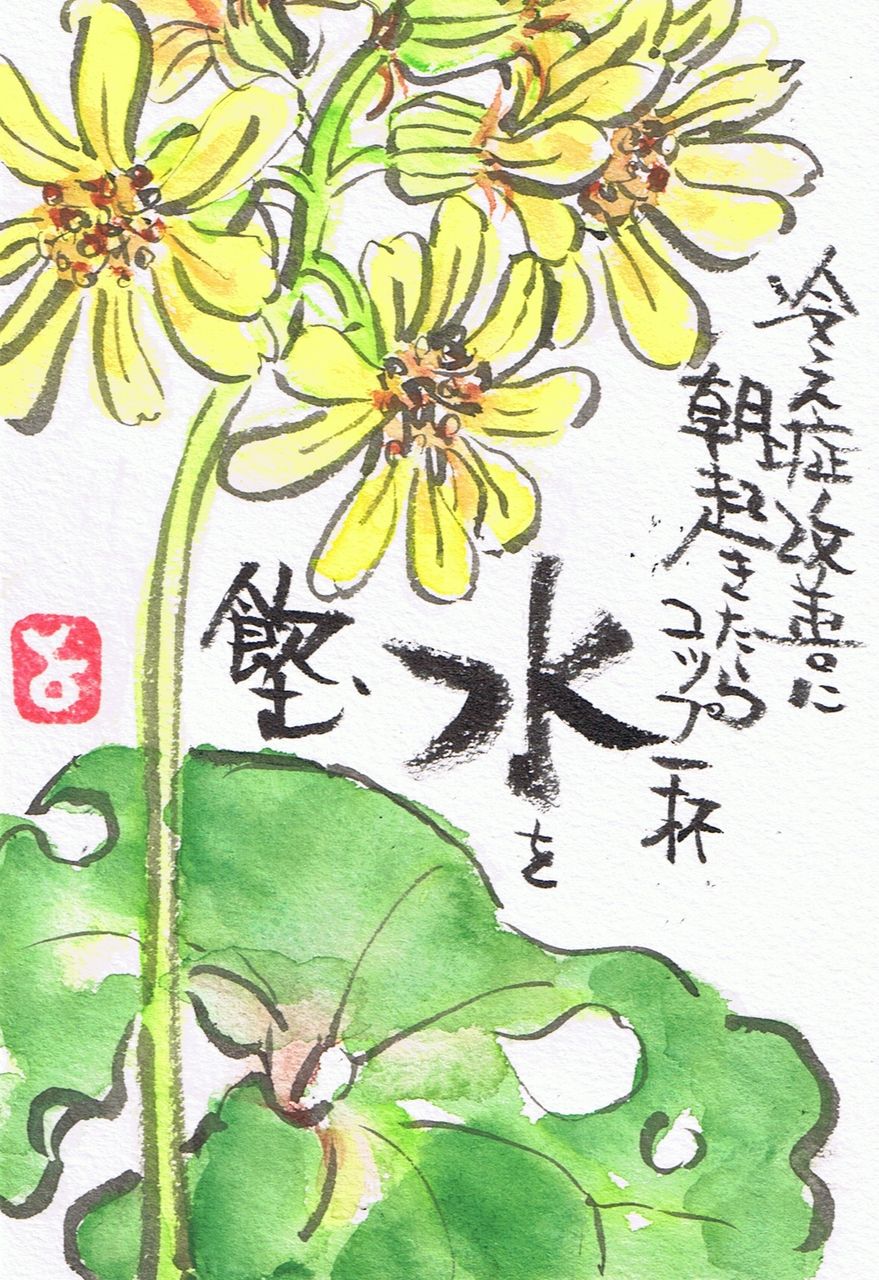 冷え症改善に
朝起きたらコップ一杯
水を
飲む